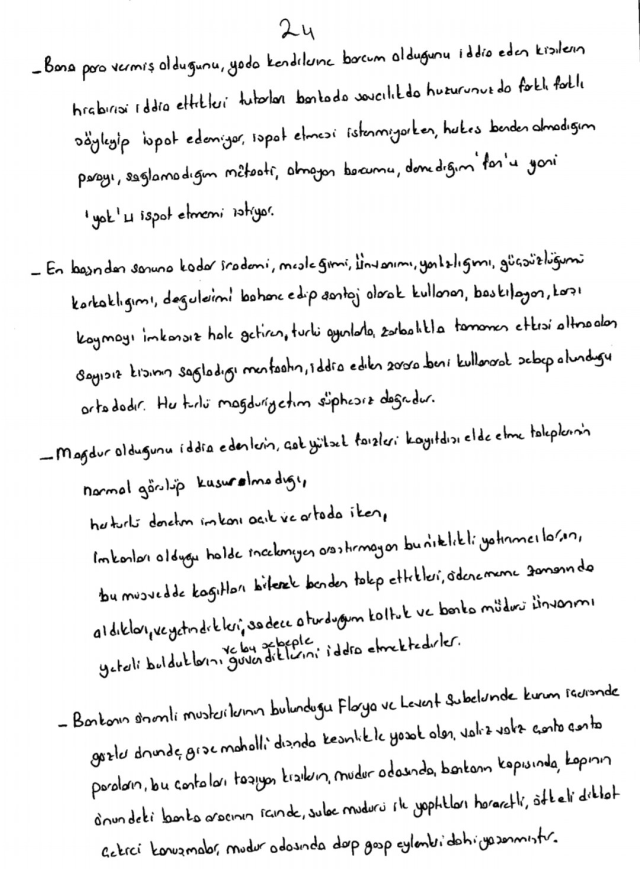 24
- Bana para vermiş olduğunu, yada kendilerine borcum olduğunu iddia eden kişilerin
hiçbirisi iddia ettikleri tutarları bankada savcılıkda huzurunuzda farklı farklı
söyleyip ispat edemiyor, ispat etmesi istenmiyorken, herkes benden almadığım
parayı, sağlamadığım menfaati, olmayan borcumu, denediğim 'fon'u yani
'yok'u ispat etmemi istiyor.
- En başından sonuna kadar irademi, mesleğimi, ünvanımı, yalnızlığımı, güçsüzlüğümü
korkaklığımı, değerlerimi bahane edip şantaj olarak kullanan, baskılayan, karşı
koymayı imkansız hale getiren, türlü oyunlarla, zorbalıkla tamamen etkisi altına alan
sayısız kişinin sağladığı menfaatin, iddia edilen zarara beni kullanarak sebep olunduğu
ortadadır. Her türlü mağduriyetim şüphesiz doğrudur.
- Mağdur olduğunu iddia edenlerin, çok yüksek faizleri kayıtdışı elde etme taleplerinin
normal görülüp kusur olmadığı,
her türlü denetim imkanı açık ve ortada iken,
imkanları olduğu halde incelemeyen araştırmayan bu nitelikli yatırımcıların,
bu müsvedde kağıtları bilerek benden talep ettikleri, ödenememe zamanında
aldıkları, ve yetindikleri, sadece oturduğum koltuk ve banka müdürü ünvanımı
yeterli bulduklarını ve bu sebeple güvendiklerini iddia etmektedirler.
- Bankanın önemli müşterilerinin bulunduğu Florya ve Levent Şubelerinde kurum içerisinde
gözler önünde, gişe mahalli dışında kesinlikle yasak olan, valiz valiz çanta çanta
paraların, bu çantaları taşıyan kişilerin, müdür odasında, bankanın kapısında, kapının
önündeki banka aracının içinde, şube müdürü ile yaptıkları hararetli, öfkeli dikkat
çekici konuşmalar, müdür odasında darp gasp eylemleri dahi yaşanmıştır.